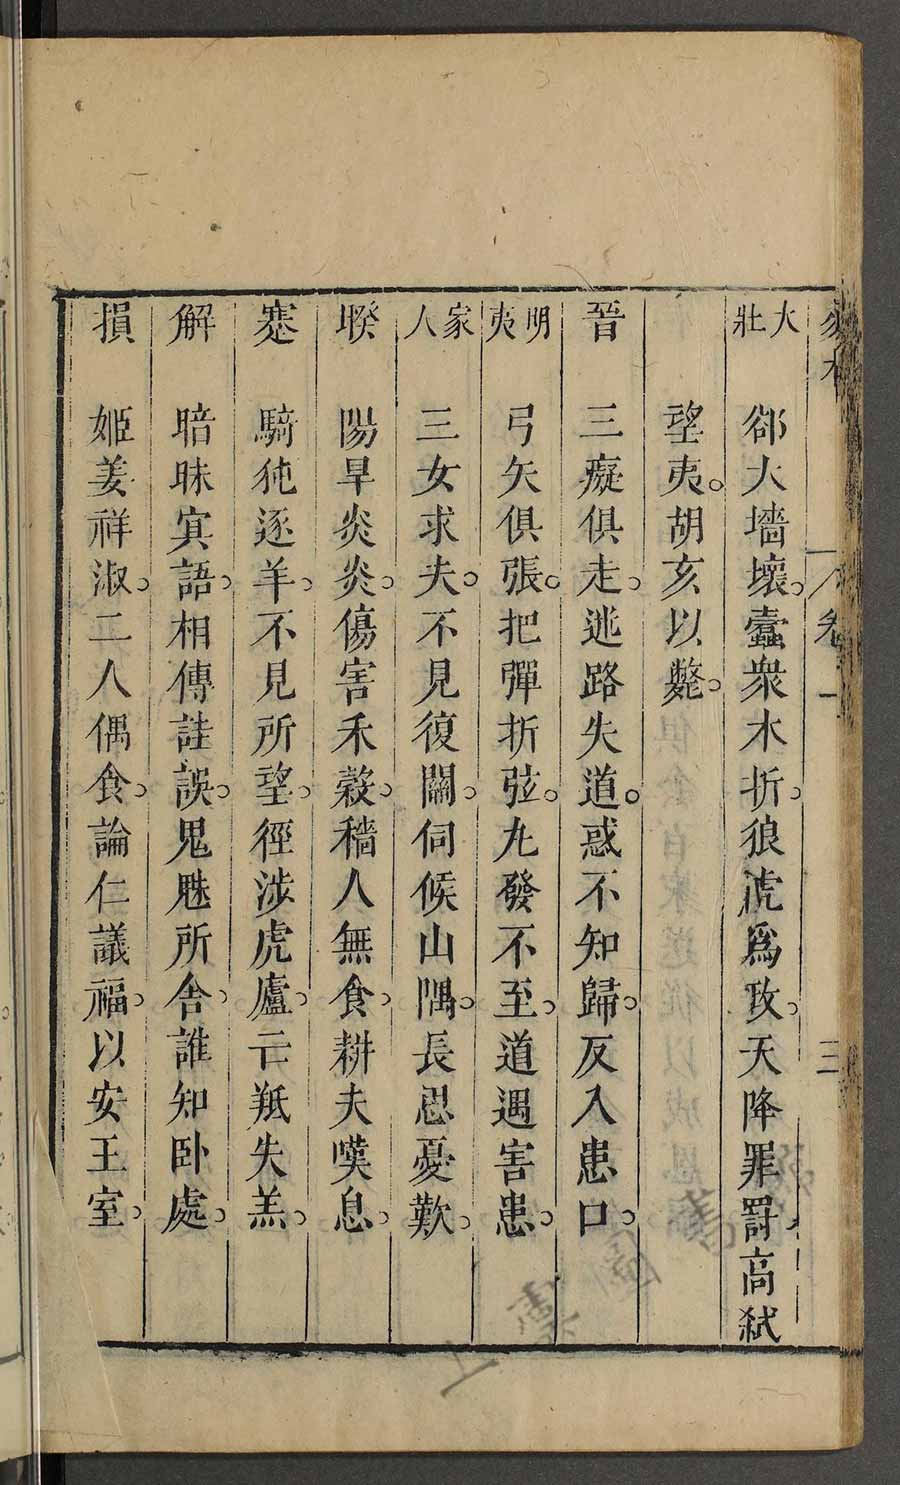 卷一　三
大壯　郤大墻壞。蠹衆木折。狼虎爲政。天降罪罰高弑
望夷。胡亥以斃。
晉　三癡俱走。迯路失道。惑不知歸。反入患口。
明夷　弓矢俱張。把彈折弦。丸發不至。道遇害患。
家人　三女求夫。不見復關。伺候山隅。長忍憂歎。
睽　陽旱炎炎。傷害禾穀。穡人無食。耕夫嘆息。
蹇　騎㹠逐羊。不見所望。徑涉虎廬。亡羝失羔。
解　暗昧冥語。相傳詿誤。鬼魅所舎。誰知卧處。
損　姬姜祥淑。二人偶食。論仁議福。以安王室。